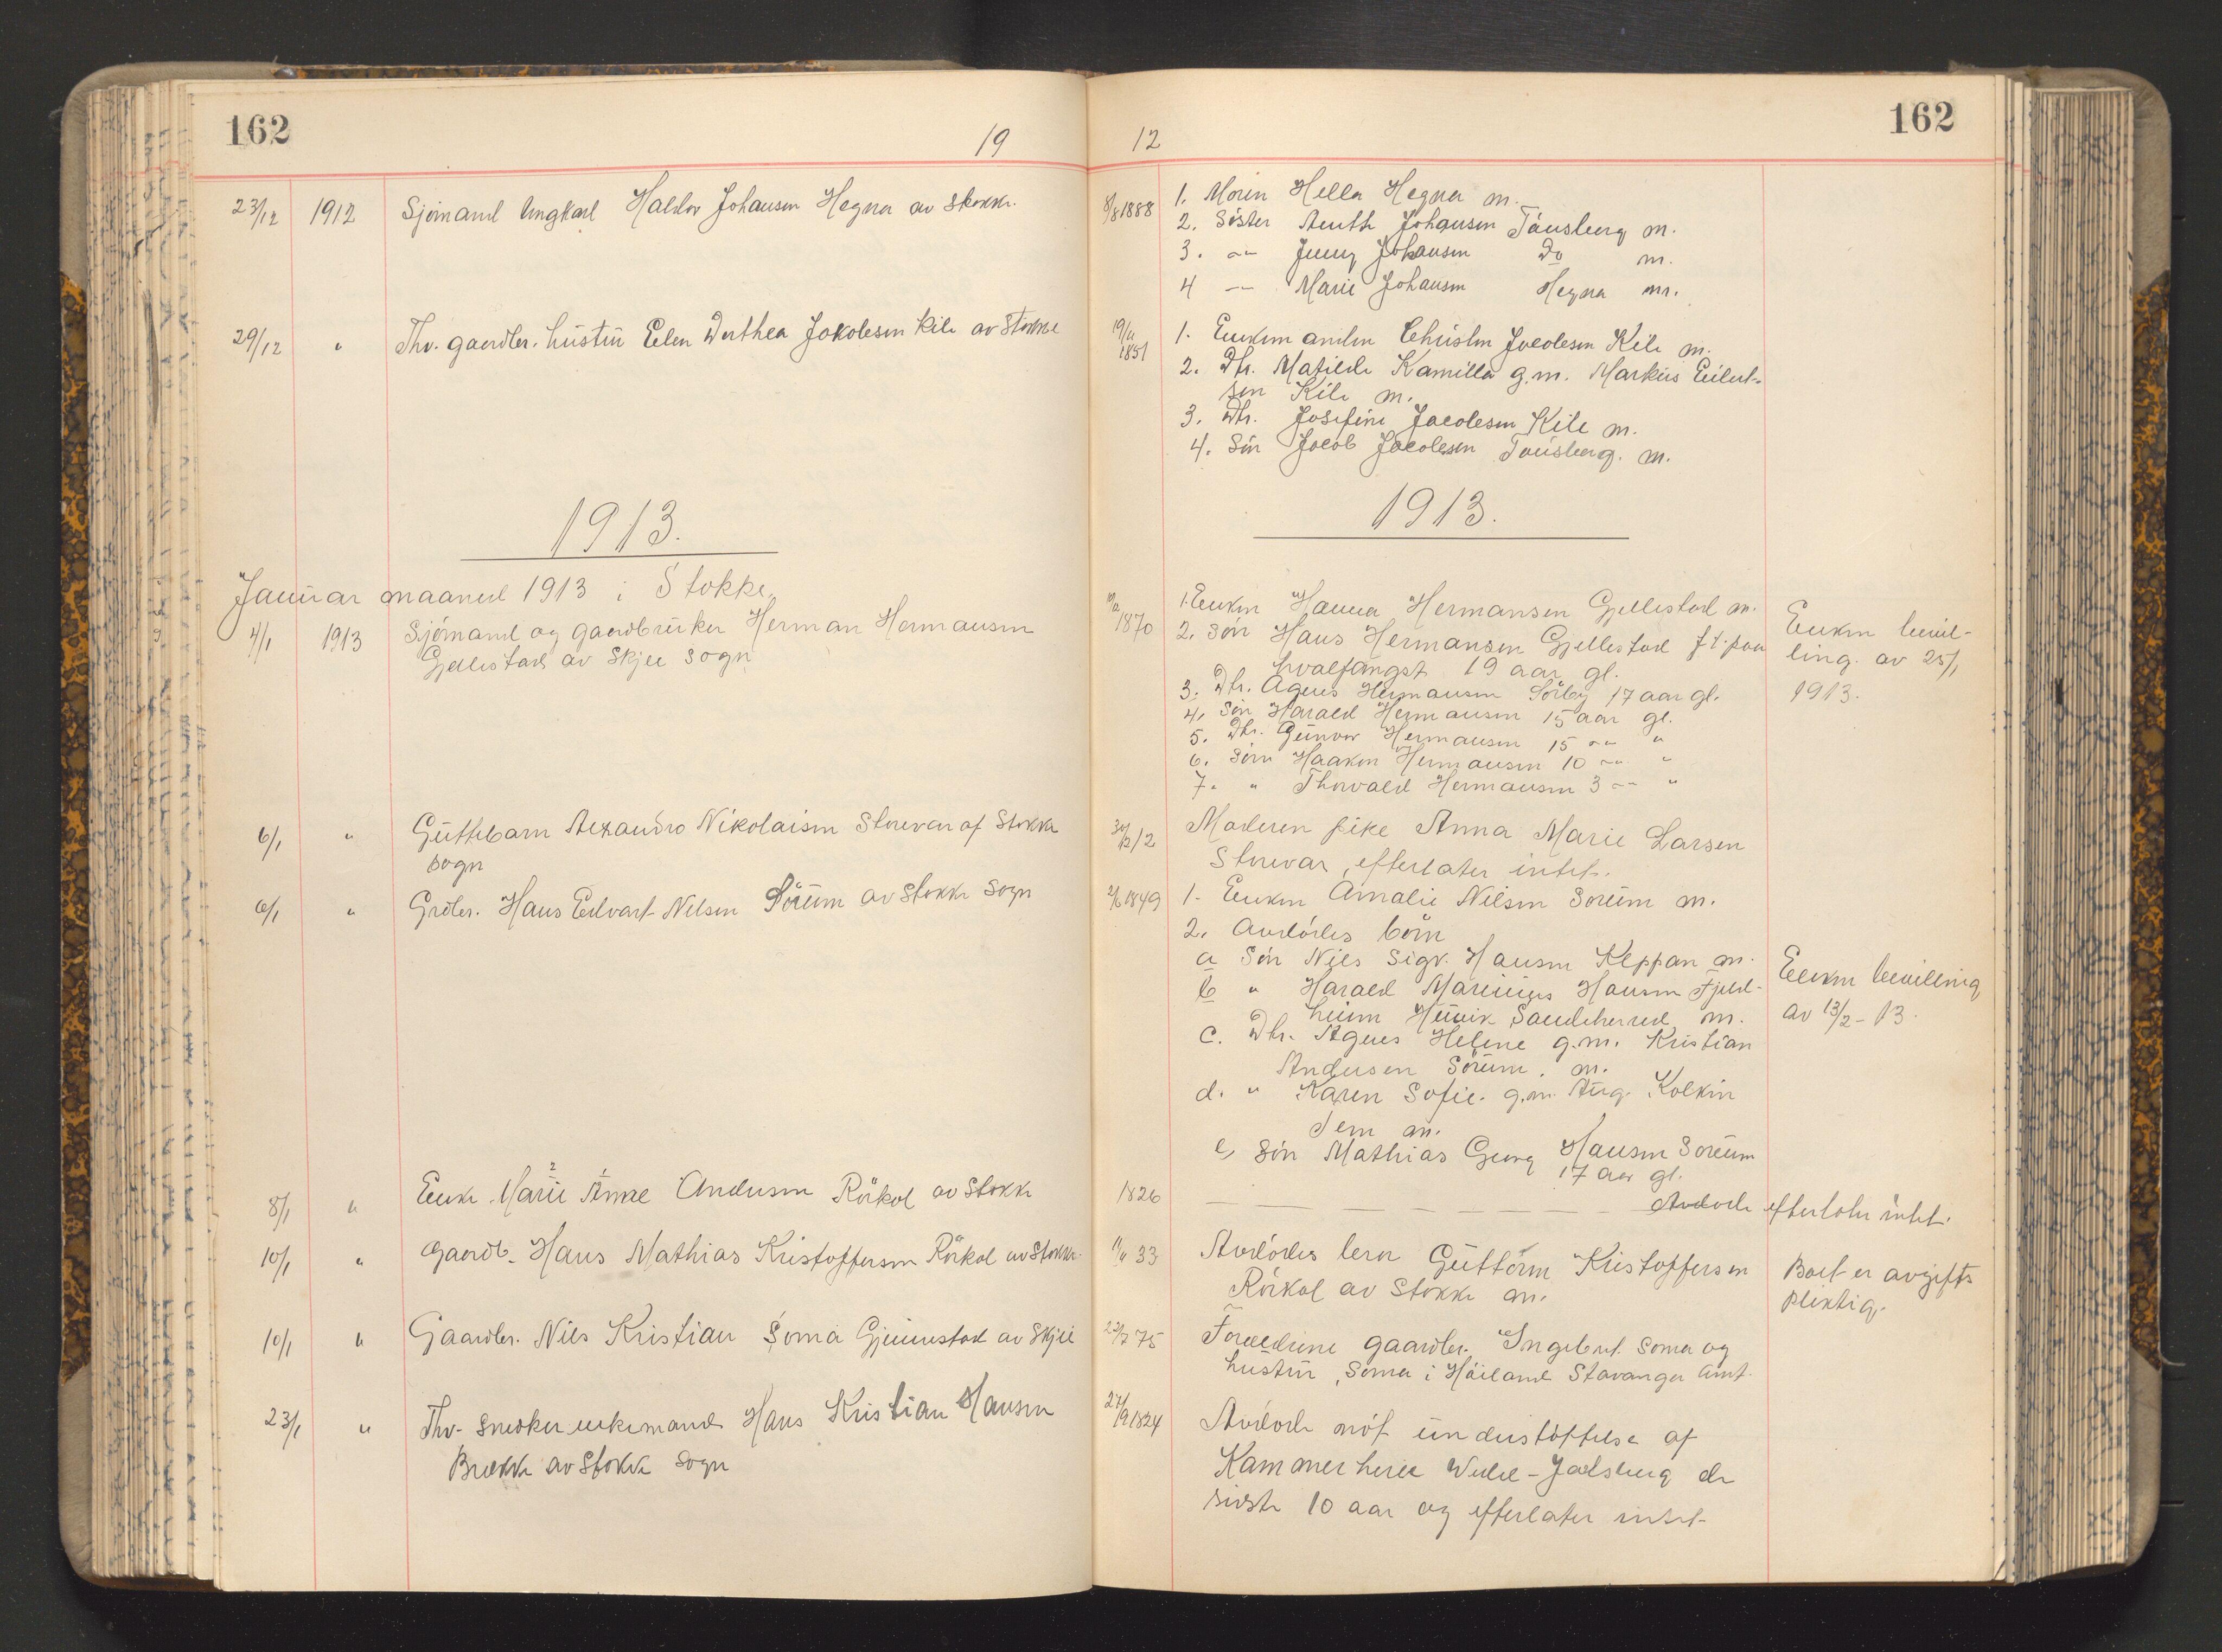 162
19
23/12 1912 Sjömand Ungkarl Haldor Johansen Hegna av Stokke.
29/12 " Thv. gaardbr. hustru Elen Dorthea Jakobsen Kile av Stokke
1913.
Januar maaned 1913 i Stokke.
4/1 1913 Sjömand og gaardbruker Herman Hermansen
Gjellestad av Skjee sogn
6/1 " Guttebarn Alexandro Nikolaisen Storevar af Stokke
sogn
6/1 " Grdbr. Hans Edvart Nilsen Sörum av Stokke Sogn
8/1 " Enke Marie Anne Andersen Rökol av Stokke
10/1 " Gaardb. Hans Mathias Kristoffersen Rökol av Stokke.
10/1 " Gaardbr. Nils Kristian Soma Gjennestad av Skjee
23/1 " Thv. Snedker enkemand Hans Kristian Hansen
Brekke av Stokke Sogn
12
162
8/8 1888 1. Moren Hella Hegna m.
2. Söster Johansen Tönsberg m.
3. -"- Jenny Johansen Do m.
4 -"- Marie Johansen Hegna m.
1851 1. Enkemanden Jacobsen Kile m.
2. Dtr. Matilde Kamilla g.m. Markus Eilert-
sen Kile m.
3. Dtr. Josefine Jacobsen Kile m.
4. Sön Jacob Jacobsen Tönsberg. m.
1913.
1870 1. Enken Hanna Hermansen Gjellestad m.
2. Sön Hans Hermansen Gjellestad f.t. paa
hvalfangst 19 aar gl.
3. Dtr. Agnes Hermansen Sörby 17 aar gl.
4. Sön Harald Hermansen 15 aar gl.
5. Dtr. Gunvor Hermansen 15 -"- "
6. Sön Haakon Hermansen 10 -"- "
7. " Thorvald Hermansen 3 -"- "
Enken bevil-
ling av 25/1
1913.
30/12 12 Moderen pike Anna Marie Larsen
Storevar, efterlater intet.
2/6 1849 1. Enken Amalie Nilsen Sörum m.
2. Avdödes börn
a Sön Nils Sigv. Hansen Kleppan m.
b " Harald Marinius Hansen Fjeld-
heim Sandeherred m.
c. Dtr. Agnes Helene g.m. Kristian
Andersen Sörum. m.
d. " Karen Sofie. g.m. Aug. Kolkin
Jem m.
e, Sön Mathias Georg Hansen Sörum
17 aar gl.
Enken bevilling
av 13/2-13.
1826 Avdöde efterlater intet.
11/11 33 Avdödes bror Guttorm Kristoffersen
Rökol av Stokke m.
Boet er avgifts
pliktig.
22/7 75 Forældrene gaardbr. Ingebret Soma og
hustru, Soma i Höiland Stavanger Amt.
27/9 1824 Avdöde nöt understöttelse af
Kammerherre Wedel-Jarlsberg de
sidste 10 aar og efterlater intet